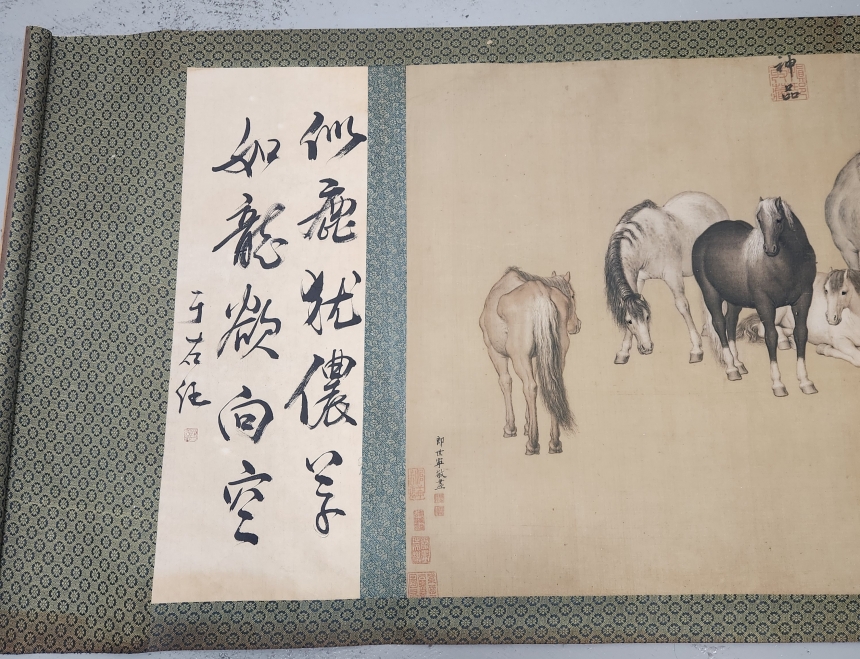 神品
郎世寧敬畫
似鹿犹儂草
如龍欲向空
于右任